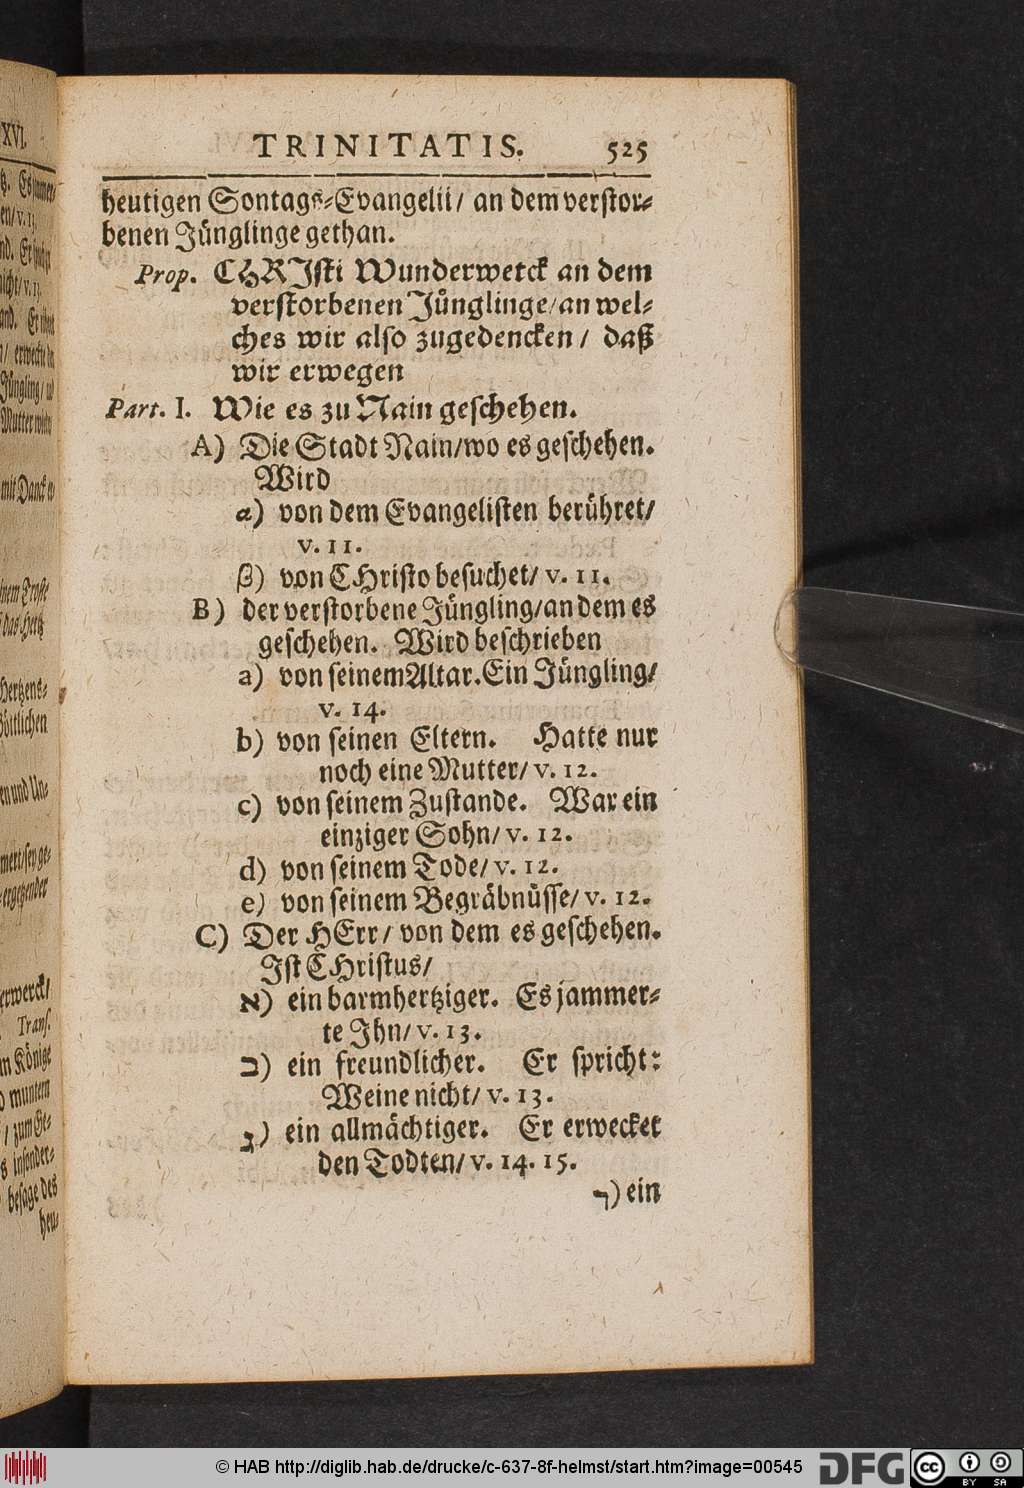 TRINITATIS. 525
heutigen Sontags-Evangelii/ an dem verstor-
benen Jünglinge gethan.
Prop. CHRJsti Wunderwetck an dem
verstorbenen Jünglinge/an wel-
ches wir also zugedencken/ daß
wir erwegen
Part. I. Wie es zu Nain geschehen.
A) Die Stadt Nain/wo es geschehen.
Wird
a) von dem Evangelisten berühret/
v. 11.
β) von CHristo besuchet/ v. 11.
B) der verstorbene Jüngling/an dem es
geschehen. Wird beschrieben
a) von seinem Altar. Ein Jüngling/
v. 14.
b) von seinen Eltern. Hatte nur
noch eine Mutter/ v. 12.
c) von seinem Zustande. War ein
einziger Sohn/ v. 12.
d) von seinem Tode/ v. 12.
e) von seinem Begräbnüsse/ v. 12.
C) Der HErr/ von dem es geschehen.
Jst CHristus/
א) ein barmhertziger. Es jammer-
te Jhn/ v. 13.
ב) ein freundlicher. Er spricht:
Weine nicht/ v. 13.
ג) ein allmächtiger. Er erwecket
den Todten/ v. 14. 15.
ד) ein
XVI.
mit Danck
das Hertz
Hertzens-
Göttlichen
Trans.
Könige
muntern
/ zum Ge-
insonder-
besage des
heu-
© HAB http://diglib.hab.de/drucke/c-637-8f-helmst/start.htm?image=00545
DFG
cc BY SA